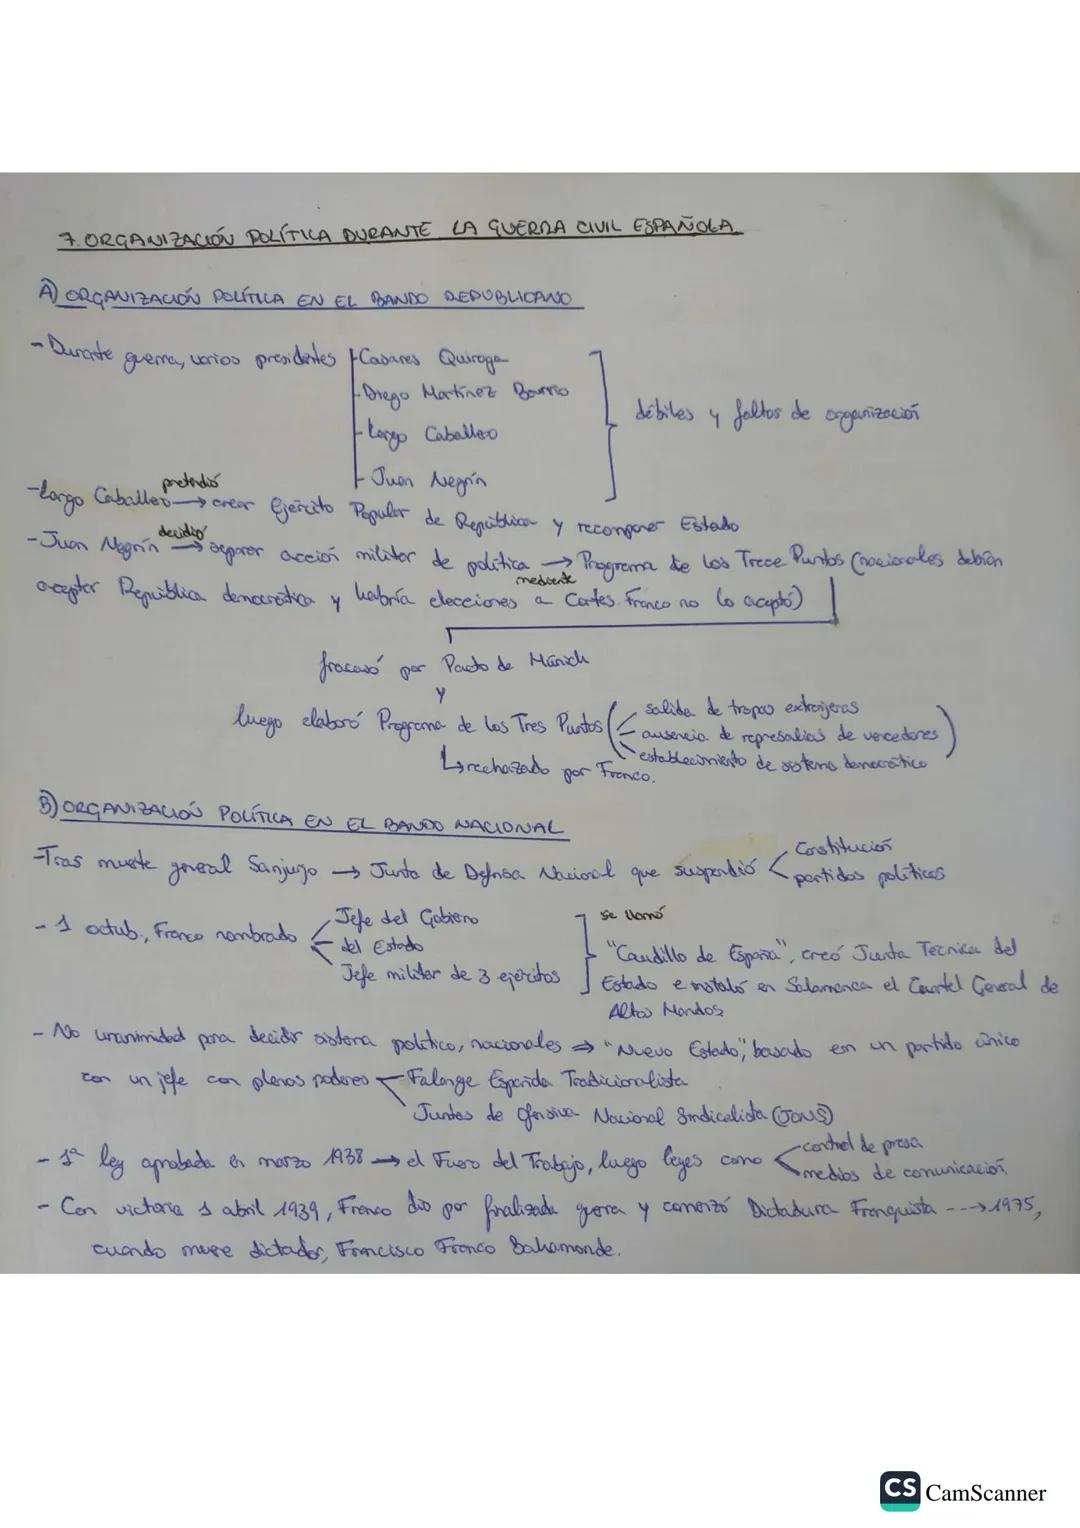 7. ORGANIZACIÓN POLÍTICA DURANTE LA GUERRA CIVIL ESPAÑOLA
A) ORGANIZACIÓN POLÍTICA EN EL BANDO REPUBLICANO
- Durante guerra, varios presidentes
- Casares Quiroga
- Diego Martínez Barrio
- Largo Caballero
- Juan Negrín
débiles y faltos de organización
- Largo Caballero pretendió → crear Ejército Popular de República y recomponer Estado
- Juan Negrín decidió → separar acción militar de política → Programa de los Trece Puntos (nacionales debían
aceptar República democrática y habría elecciones a Cortes. Franco no lo aceptó)
mediante
fracasó por Pacto de Múnich
y
luego elaboró Programa de los Tres Puntos
salida de tropas extranjeras
ausencia de represalias de vencedores
establecimiento de sistema democrático
↳ rechazado por Franco.
B) ORGANIZACIÓN POLÍTICA EN EL BANDO NACIONAL
- Tras muerte general Sanjurjo → Junta de Defensa Nacional que suspendió
Constitución
partidos políticos
- 1 octub., Franco nombrado
Jefe del Gobierno
del Estado
Jefe militar de 3 ejércitos
se llamó
"Caudillo de España", creó Junta Técnica del
Estado e instaló en Salamanca el Cuartel General de
Altos Mandos
- No unanimidad para decidir sistema político, nacionales ⇒ "Nuevo Estado", basado en un partido único
con un jefe con plenos poderes
Falange Española Tradicionalista
Juntas de Ofensiva Nacional Sindicalista (JONS)
- 1ª ley aprobada en marzo 1938 → el Fuero del Trabajo, luego leyes como
control de prensa
medios de comunicación.
- Con victoria 1 abril 1939, Franco dio por finalizada guerra y comenzó Dictadura Franquista ---> 1975,
cuando muere dictador, Francisco Franco Bahamonde.
CS CamScanner